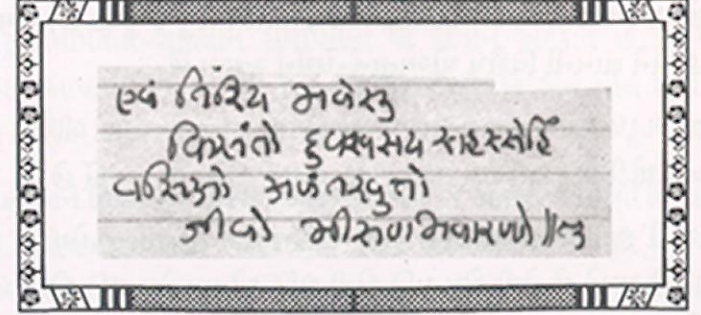 एवं तिरिय भवेसु
किसंतो दुक्खसय सहस्सेहिं
वसिओ अणंतखुत्तो
जीवो भीसण भवारण्णे ॥